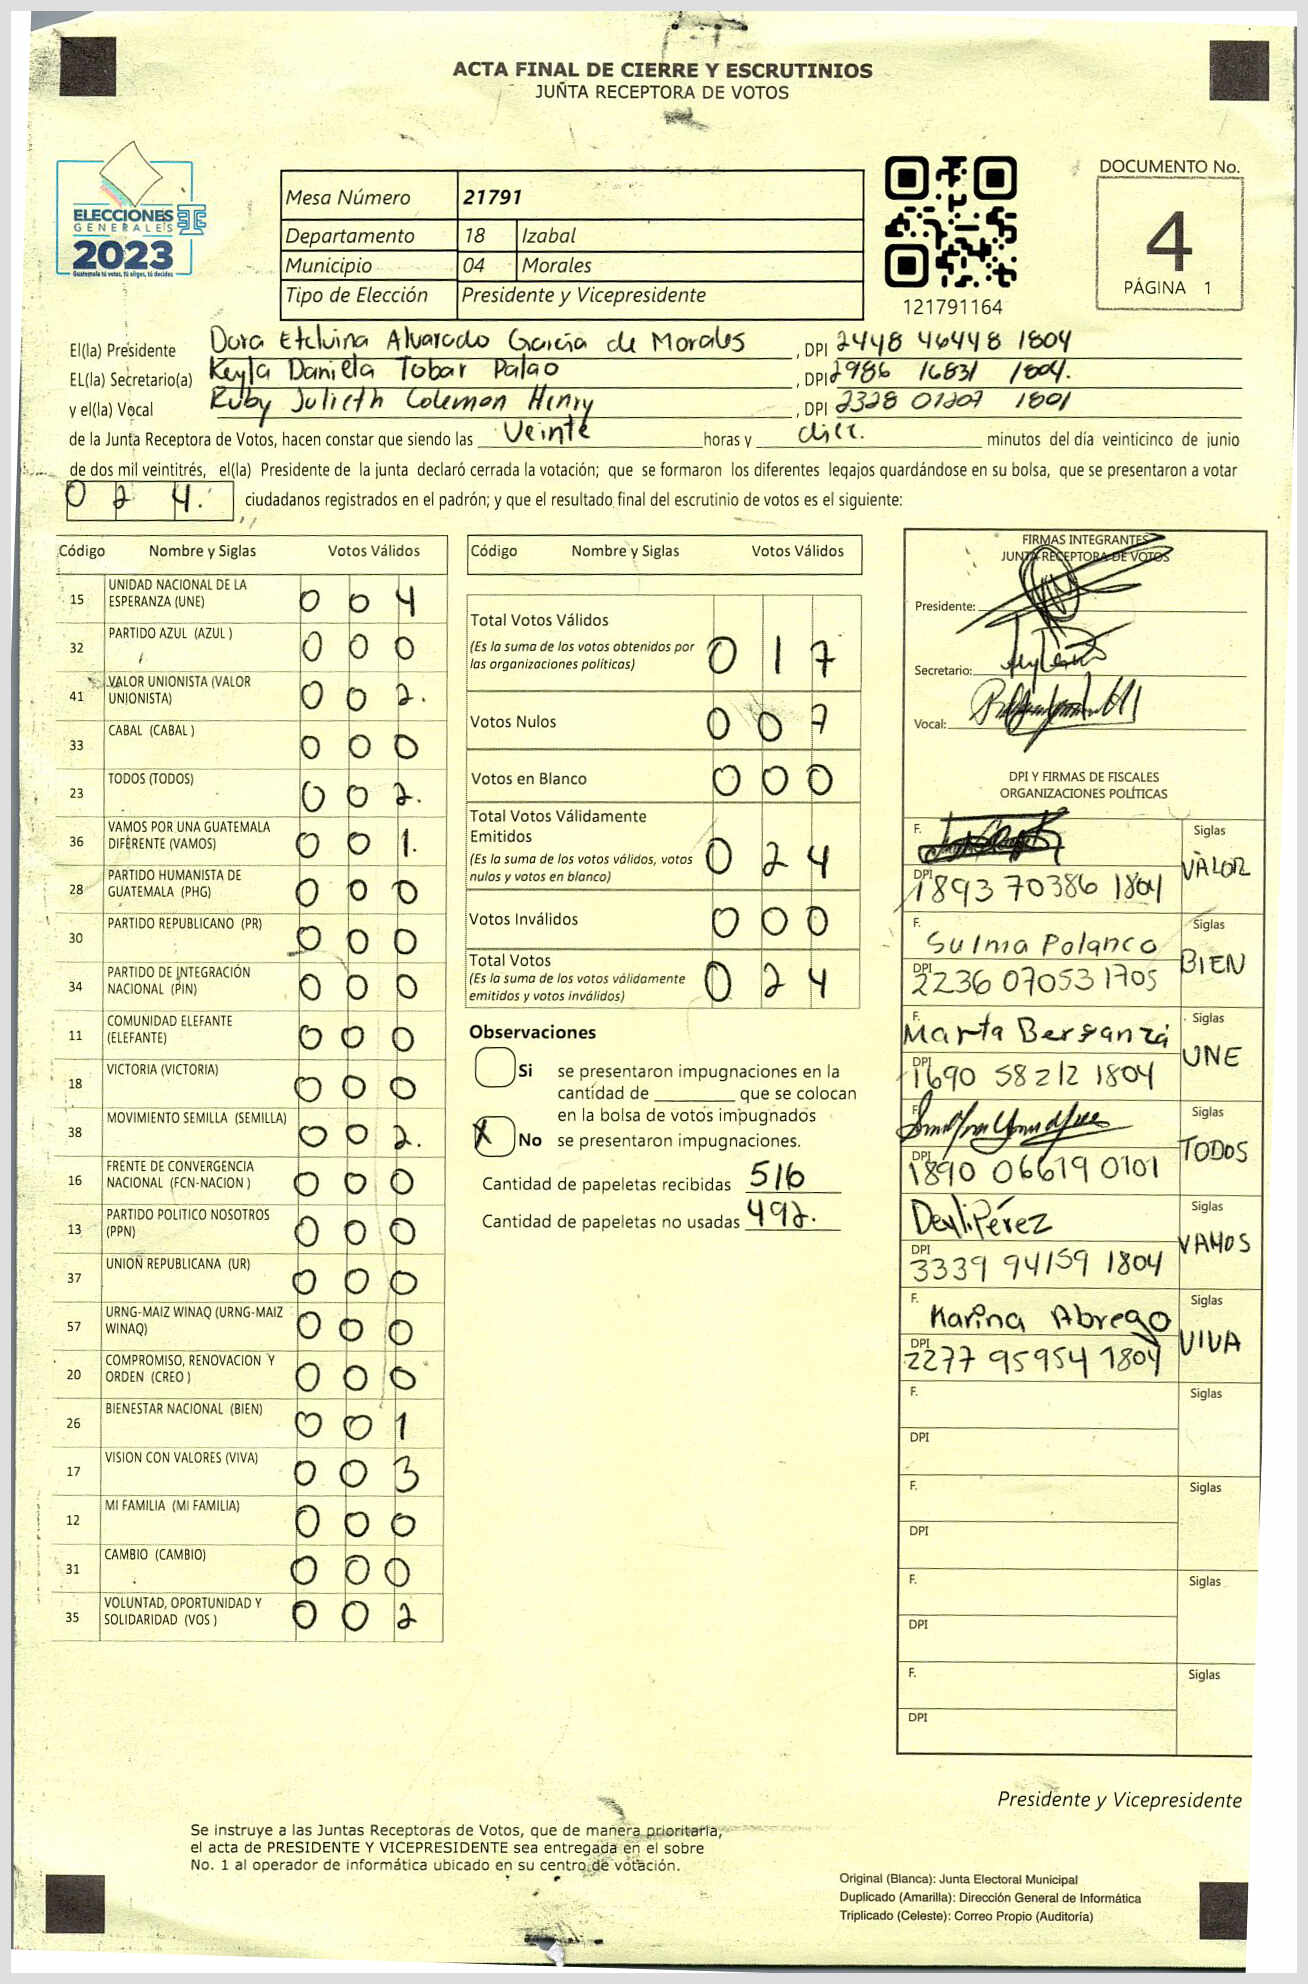 ACTA FINAL DE CIERRE Y ESCRUTINIOS
JUNTA RECEPTORA DE VOTOS
ELECCIONES
GENERALES
2023
Guatemala tú votas, tú eliges, tú decides
Mesa Número 21791
Departamento 18 Izabal
Municipio 04 Morales
Tipo de Elección Presidente y Vicepresidente
121791164
DOCUMENTO No.
4
PÁGINA 1
El(la) Presidente Dora Etelvina Alvarado García de Morales, DPI 2448 46448 1804
EL(la) Secretario(a) Keyla Daniela Tobar Palao, DPI 2986 16831 1804.
y el(la) Vocal Ruby Julieth Coleman Henry, DPI 2328 01207 1801
de la Junta Receptora de Votos, hacen constar que siendo las Veinte horas y diez. minutos del día veinticinco de junio
de dos mil veintitrés, el(la) Presidente de la junta declaró cerrada la votación; que se formaron los diferentes legajos quardándose en su bolsa, que se presentaron a votar
0 2 4. ciudadanos registrados en el padrón; y que el resultado final del escrutinio de votos es el siguiente:
Código Nombre y Siglas Votos Válidos
15 UNIDAD NACIONAL DE LA ESPERANZA (UNE) 0 0 4
32 PARTIDO AZUL (AZUL ) 0 0 0
41 VALOR UNIONISTA (VALOR UNIONISTA) 0 0 2.
33 CABAL (CABAL ) 0 0 0
23 TODOS (TODOS) 0 0 2.
36 VAMOS POR UNA GUATEMALA DIFERENTE (VAMOS) 0 0 1.
28 PARTIDO HUMANISTA DE GUATEMALA (PHG) 0 0 0
30 PARTIDO REPUBLICANO (PR) 0 0 0
34 PARTIDO DE INTEGRACIÓN NACIONAL (PIN) 0 0 0
11 COMUNIDAD ELEFANTE (ELEFANTE) 0 0 0
18 VICTORIA (VICTORIA) 0 0 0
38 MOVIMIENTO SEMILLA (SEMILLA) 0 0 2.
16 FRENTE DE CONVERGENCIA NACIONAL (FCN-NACION ) 0 0 0
13 PARTIDO POLITICO NOSOTROS (PPN) 0 0 0
37 UNION REPUBLICANA (UR) 0 0 0
57 URNG-MAIZ WINAQ (URNG-MAIZ WINAQ) 0 0 0
20 COMPROMISO, RENOVACION Y ORDEN (CREO ) 0 0 0
26 BIENESTAR NACIONAL (BIEN) 0 0 1
17 VISION CON VALORES (VIVA) 0 0 3
12 MI FAMILIA (MI FAMILIA) 0 0 0
31 CAMBIO (CAMBIO) 0 0 0
35 VOLUNTAD, OPORTUNIDAD Y SOLIDARIDAD (VOS ) 0 0 2
Código Nombre y Siglas Votos Válidos
Total Votos Válidos 0 1 7
(Es la suma de los votos obtenidos por
las organizaciones políticas)
Votos Nulos 0 0 7
Votos en Blanco 0 0 0
Total Votos Válidamente
Emitidos 0 2 4
(Es la suma de los votos válidos, votos
nulos y votos en blanco)
Votos Inválidos 0 0 0
Total Votos 0 2 4
(Es la suma de los votos válidamente
emitidos y votos inválidos)
Observaciones
Si se presentaron impugnaciones en la
cantidad de ________ que se colocan
en la bolsa de votos impugnados
X No se presentaron impugnaciones.
Cantidad de papeletas recibidas 516
Cantidad de papeletas no usadas 492.
FIRMAS INTEGRANTES
JUNTA RECEPTORA DE VOTOS
Presidente:
Secretario:
Vocal:
DPI Y FIRMAS DE FISCALES
ORGANIZACIONES POLÍTICAS
F. Siglas VALOR
DPI 1893 70386 1804
F. Sulma Polanco Siglas BIEN
DPI 2236 07053 1705
F. Marta Berganza Siglas UNE
DPI 1690 58212 1804
F. Siglas TODOS
DPI 1890 06619 0101
Deyli Pérez Siglas VAMOS
DPI 3339 94159 1804
F. Karina Abrego Siglas VIVA
DPI 2277 95954 1804
F. Siglas
DPI
F. Siglas
DPI
F. Siglas
DPI
F. Siglas
DPI
Presidente y Vicepresidente
Se instruye a las Juntas Receptoras de Votos, que de manera prioritaria,
el acta de PRESIDENTE Y VICEPRESIDENTE sea entregada en el sobre
No. 1 al operador de informática ubicado en su centro de votación.
Original (Blanca): Junta Electoral Municipal
Duplicado (Amarilla): Dirección General de Informática
Triplicado (Celeste): Correo Propio (Auditoría)